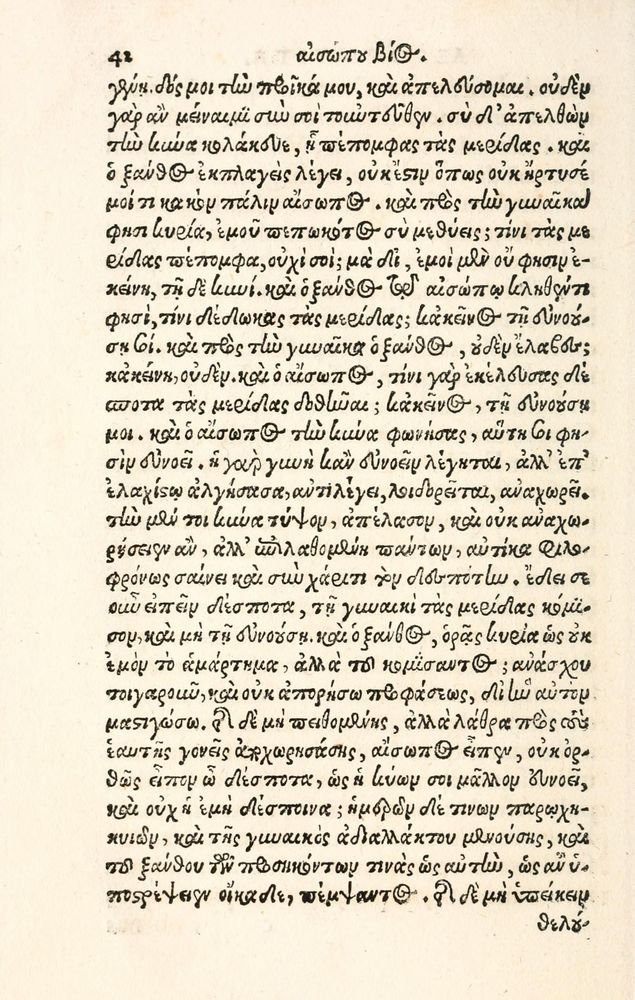 42 αἰσώπου βίος.
γεύῃ. δός μοι τὴν προῖκά μου, καὶ ἀπελεύσομαι. οὐδὲν
γὰρ ἂν μείναιμι σὺν σοὶ τοὐντεῦθεν. σὺ δ' ἀπελθὼν
τὴν κύνα κολάκευε, ᾗ πέπομφας τὰς μερίδας. καὶ
ὁ ξάνθος ἐκπλαγεὶς λέγει, οὐκ ἔστιν ὅπως οὐκ ἤρτυσέ
μοί τι κακὸν πάλιν αἴσωπος. καὶ πρὸς τὴν γυναῖκα
φησὶ κυρία, ἐμοῦ πεπωκότος σὺ μεθύεις; τίνι τὰς με
ρίδας πέπομφα, οὐχὶ σοί; μὰ δί, ἐμοὶ μὲν οὔ φησιν ἐ-
κείνη, τῇ δὲ κυνί. καὶ ὁ ξάνθος τῷ αἰσώπῳ κληθέντι
φησὶ, τίνι δέδωκας τὰς μερίδας; κἀκεῖνος τῇ εὐνού-
σῃ σοι. καὶ πρὸς τὴν γυναῖκα ὁ ξάνθος, οὐδὲν ἔλαβες;
κἀκείνη, οὐδέν. καὶ ὁ αἴσωπος, τίνι γὰρ ἐκέλευσας δέ
σποτα τὰς μερίδας δοθῆναι; κἀκεῖνος, τῇ εὐνούσῃ
μοι. καὶ ὁ αἴσωπος τὴν κύνα φωνήσας, αὕτη σοι φη-
σὶν εὐνοεῖ. ἡ γὰρ γυνὴ κἂν εὐνοεῖν λέγηται, ἀλλ' ἐπ'
ἐλαχίστῳ ἀλγήσασα, ἀντιλέγει, λοιδορεῖται, ἀναχωρεῖ.
τὴν μέν τοι κύνα τύψον, ἀπέλασον, καὶ οὐκ ἀναχω-
ρήσειεν ἂν, ἀλλ' ἐπιλαθομένη πάντων, αὐτίκα φιλο-
φρόνως σαίνει καὶ σὺν χάριτι τὸν δεσπότην. ἔδει σε
οὖν εἰπεῖν δέσποτα, τῇ γυναικὶ τὰς μερίδας κόμι-
σον, καὶ μὴ τῇ εὐνούσῃ. καὶ ὁ ξάνθος, ὁρᾷς κυρία ὡς οὐκ
ἐμὸν τὸ ἁμάρτημα, ἀλλὰ τοῦ κομίσαντος; ἀνάσχου
τοιγαροῦν, καὶ οὐκ ἀπορήσω προφάσεως, δι' ἣν αὐτὸν
μαστιγώσω. τῆς δὲ μὴ πειθομένης, ἀλλὰ λάθρα πρὸς τοὺς
ἑαυτῆς γονεῖς ἀναχωρησάσης, αἴσωπος εἶπεν, οὐκ ὀρ-
θῶς εἶπον ὦ δέσποτα, ὡς ἡ κύων σοι μᾶλλον εὐνοεῖ,
καὶ οὐχ ἡ ἐμὴ δέσποινα; ἡμερῶν δέ τινων παρῳχη-
κυιῶν, καὶ τῆς γυναικὸς ἀδιαλλάκτου μενούσης, καὶ
τοῦ ξάνθου τῶν προσηκόντων τινὰς ὡς αὐτὴν, ὡς ἂν ὑ-
ποστρέψειεν οἴκαδε, πέμψαντος. τῆς δὲ μὴ ὑπείκειν
θελού-